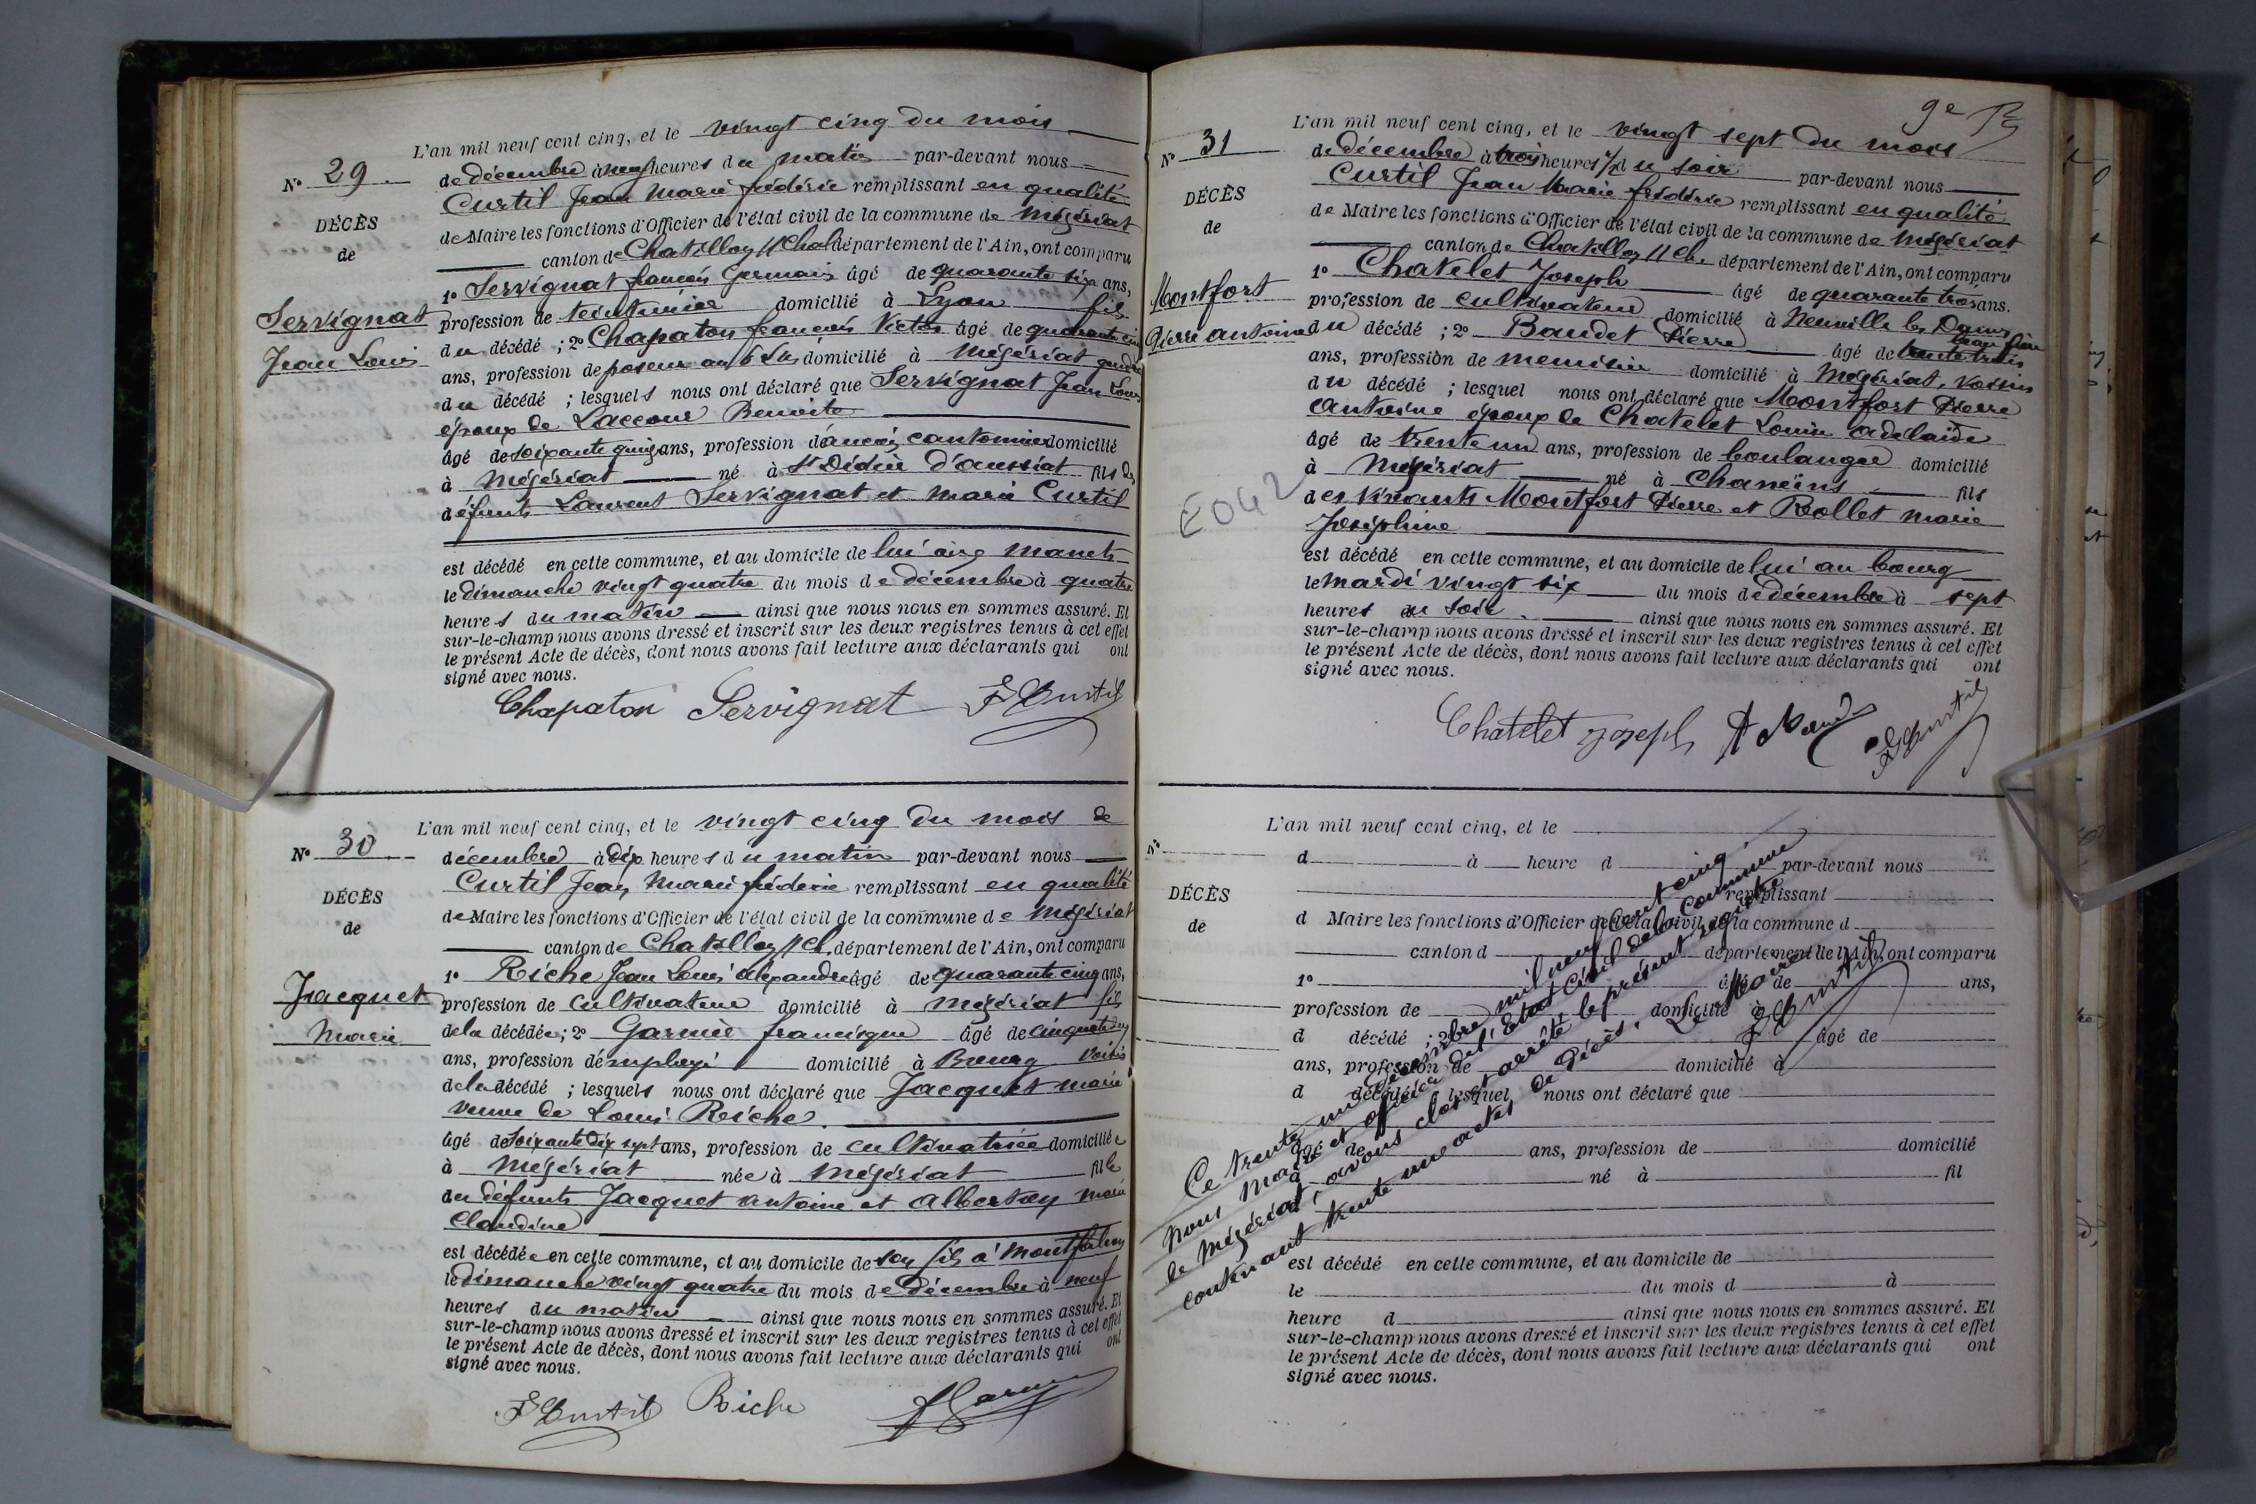 Nº 29
DÉCÈS
de
Servignat
Jean Louis
L'an mil neuf cent cinq, et le vingt cinq du mois
de décembre à neuf heures du matin par-devant nous
Curtil Jean Marie frédéric remplissant en qualité
de Maire les fonctions d'Officier de l'état civil de la commune de Mézériat
canton de Chatillon s/ Chal. département de l'Ain, ont comparu
1º Servignat françois Germain âgé de quarante six ans,
profession de teinturier domicilié à Lyon fils
du décédé ; 2º Chapaton françois Victor âgé de quarante cinq
ans, profession de poseur au domicilié à Mézériat gendre
du décédé ; lesquels nous ont déclaré que Servignat Jean Louis
époux de Laccour Benoite
âgé de soixante quinze ans, profession d'ancien cantonnier domicilié
à Mézériat né à St Didier d'aussiat fils de
défunts Laurent Servignat et Marie Curtil
est décédé en cette commune, et au domicile de lui aux Manets
le dimanche vingt quatre du mois de décembre à quatre
heures du matin ainsi que nous nous en sommes assuré. Et
sur-le-champ nous avons dressé et inscrit sur les deux registres tenus à cet effet
le présent Acte de décès, dont nous avons fait lecture aux déclarants qui ont
signé avec nous.
Chapaton Servignat F Curtil
Nº 30
DÉCÈS
de
Jacquet
Marie
L'an mil neuf cent cinq, et le vingt cinq du mois de
décembre à dix heures du matin par-devant nous
Curtil Jean Marie frédéric remplissant en qualité
de Maire les fonctions d'Officier de l'état civil de la commune de Mézériat
canton de Chatillon s/ Ch. département de l'Ain, ont comparu
1º Riche Jean Louis alexandre âgé de quarante cinq ans,
profession de cultivateur domicilié à Mézériat fils
de la décédée ; 2º Garnier francisque âgé de cinquante deux
ans, profession d'employé domicilié à Bourg voisin
de la décédé ; lesquels nous ont déclaré que Jacquet marie
veuve de Louis Riche.
âgé de soixante dix sept ans, profession de cultivatrice domiciliée
à Mézériat née à Mézériat fille
des défunts Jacquet antoine et Albertoy marie
Claudine
est décédée en cette commune, et au domicile de son fils à Montfalcon
le dimanche vingt quatre du mois de décembre à neuf
heures du matin ainsi que nous nous en sommes assuré. Et
sur-le-champ nous avons dressé et inscrit sur les deux registres tenus à cet effet
le présent Acte de décès, dont nous avons fait lecture aux déclarants qui ont
signé avec nous.
F Curtil Riche Garnier
9e
Nº 31
DÉCÈS
de
Montfort
Pierre antoine
E042
L'an mil neuf cent cinq, et le vingt sept du mois
de décembre à trois heures 1/2 du soir par-devant nous
Curtil Jean Marie frédéric remplissant en qualité
de Maire les fonctions d'Officier de l'état civil de la commune de Mézériat
canton de Chatillon s/ Ch. département de l'Ain, ont comparu
1º Chatelet Joseph âgé de quarante trois ans.
profession de cultivateur domicilié à Neuville les Dames beau frère
du décédé ; 2º Baudet Pierre âgé de trente trois
ans, profession de menuisier domicilié à Mézériat, voisin
du décédé ; lesquel nous ont déclaré que Montfort Pierre
Antoine époux de Chatelet Louise adélaïde
âgé de trente un ans, profession de boulanger domicilié
à Mézériat né à Chaneins fils
des vivants Montfort Pierre et Rollet marie
Joséphine
est décédé en cette commune, et au domicile de lui au bourg
le mardi vingt six du mois de décembre à sept
heures du soir. ainsi que nous nous en sommes assuré. Et
sur-le-champ nous avons dressé et inscrit sur les deux registres tenus à cet effet
le présent Acte de décès, dont nous avons fait lecture aux déclarants qui ont
signé avec nous.
Chatelet joseph F Curtil
Nº
DÉCÈS
de
L'an mil neuf cent cinq, et le
d à heure d par-devant nous
remplissant
d Maire les fonctions d'Officier de l'état civil de la commune d
canton d département de l'Ain, ont comparu
1º âgé de ans,
profession de domicilié à
d décédé ; 2º âgé de
ans, profession de domicilié à
d décédé ; lesquel nous ont déclaré que
âgé de ans, profession de domicilié
à né à fil
est décédé en cette commune, et au domicile de
le du mois d à
heure d ainsi que nous nous en sommes assuré. Et
sur-le-champ nous avons dressé et inscrit sur les deux registres tenus à cet effet
le présent Acte de décès, dont nous avons fait lecture aux déclarants qui ont
signé avec nous.
Ce trente un décembre mil neuf cent cinq
nous Maire et officier de l'Etat Civil de la commune
de Mézériat, avons clos et arrêté le présent registre
contenant trente une actes de décès. Le Maire
F Curtil